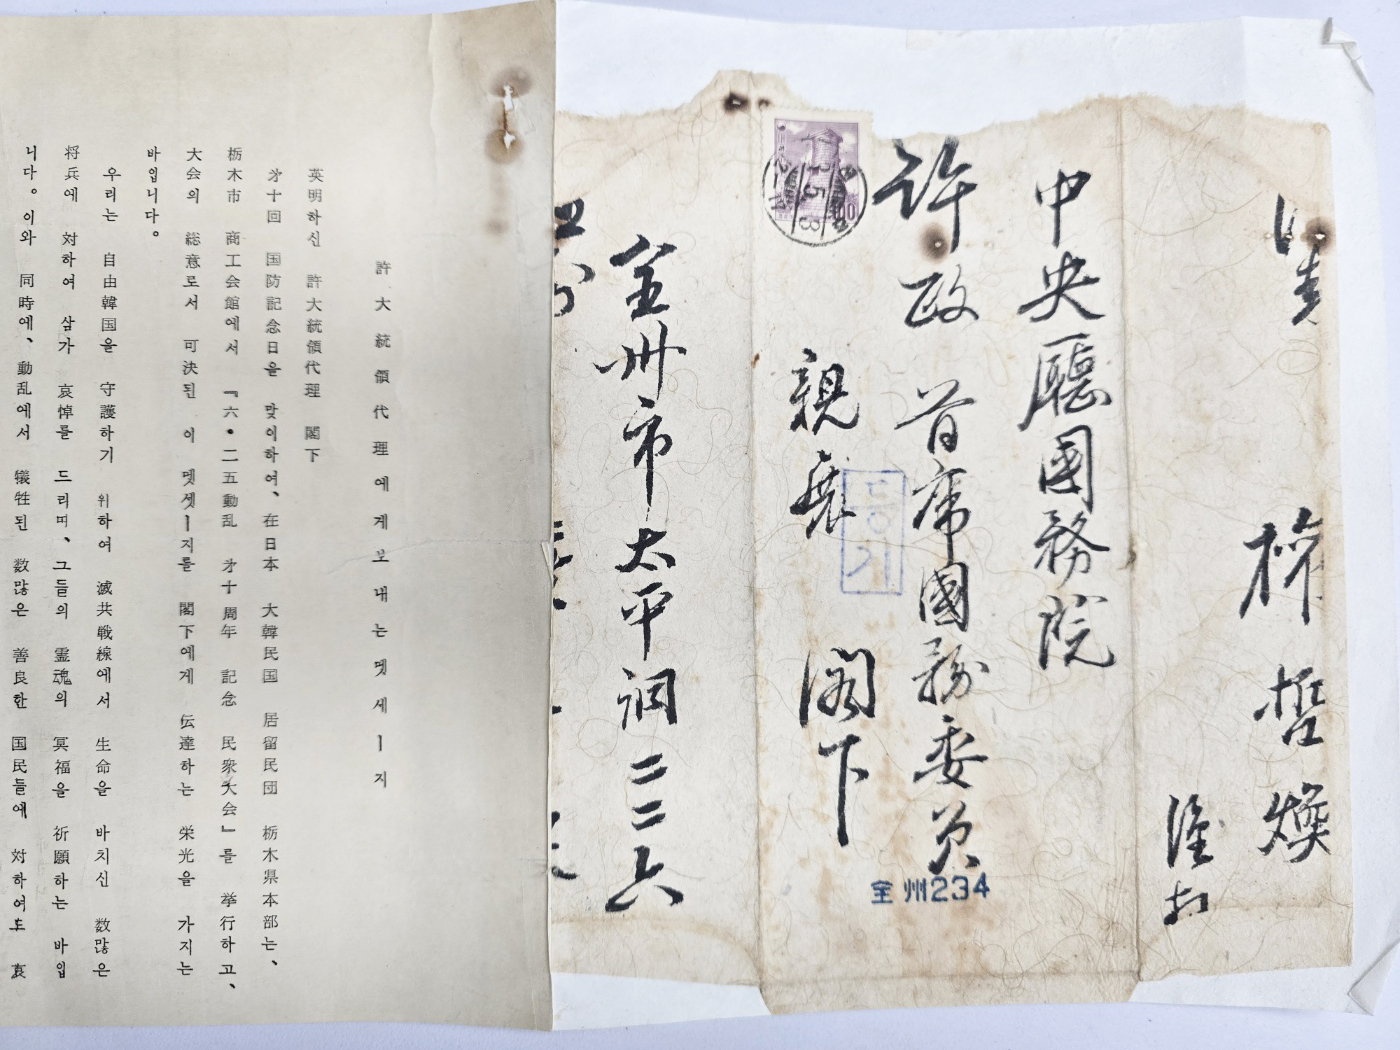 中央廳國務院
許政 首席國務委員
親展 閣下
등기
全州234
全州市太平洞二二六
許大統領代理에게보내는멧세ー지
英明하신 許大統領代理 閣下
才十回 国防記念日을 맞이하여、在日本 大韓民国 居留民団 栃木県本部는、
栃木市 商工会館에서 『六・二五動乱 才十周年 記念 民衆大会』를 挙行하고、
大会의 総意로서 可決된 이 멧셋ー지를 閣下에게 伝達하는 栄光을 가지는
바입니다。
우리는 自由韓国을 守護하기 위하여 滅共戦線에서 生命을 바치신 数많은
将兵에 対하여 삼가 哀悼를 드리며、그들의 霊魂의 冥福을 祈願하는 바입
니다。이와 同時에、動乱에서 犠牲된 数많은 善良한 国民들에 対하여도 哀